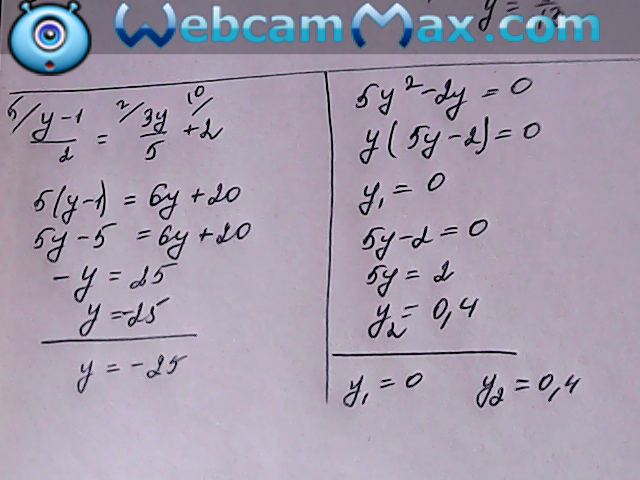 WebcamMax.com
y =
5/ y-1/2 = 2/ 3y/5 + 10/ 2
5(y-1) = 6y+20
5y-5 = 6y+20
-y = 25
y=-25
y = -25
5y²-2y = 0
y(5y-2)=0
y₁ = 0
5y-2=0
5y= 2
y₂= 0,4
y₁ = 0 y₂=0,4